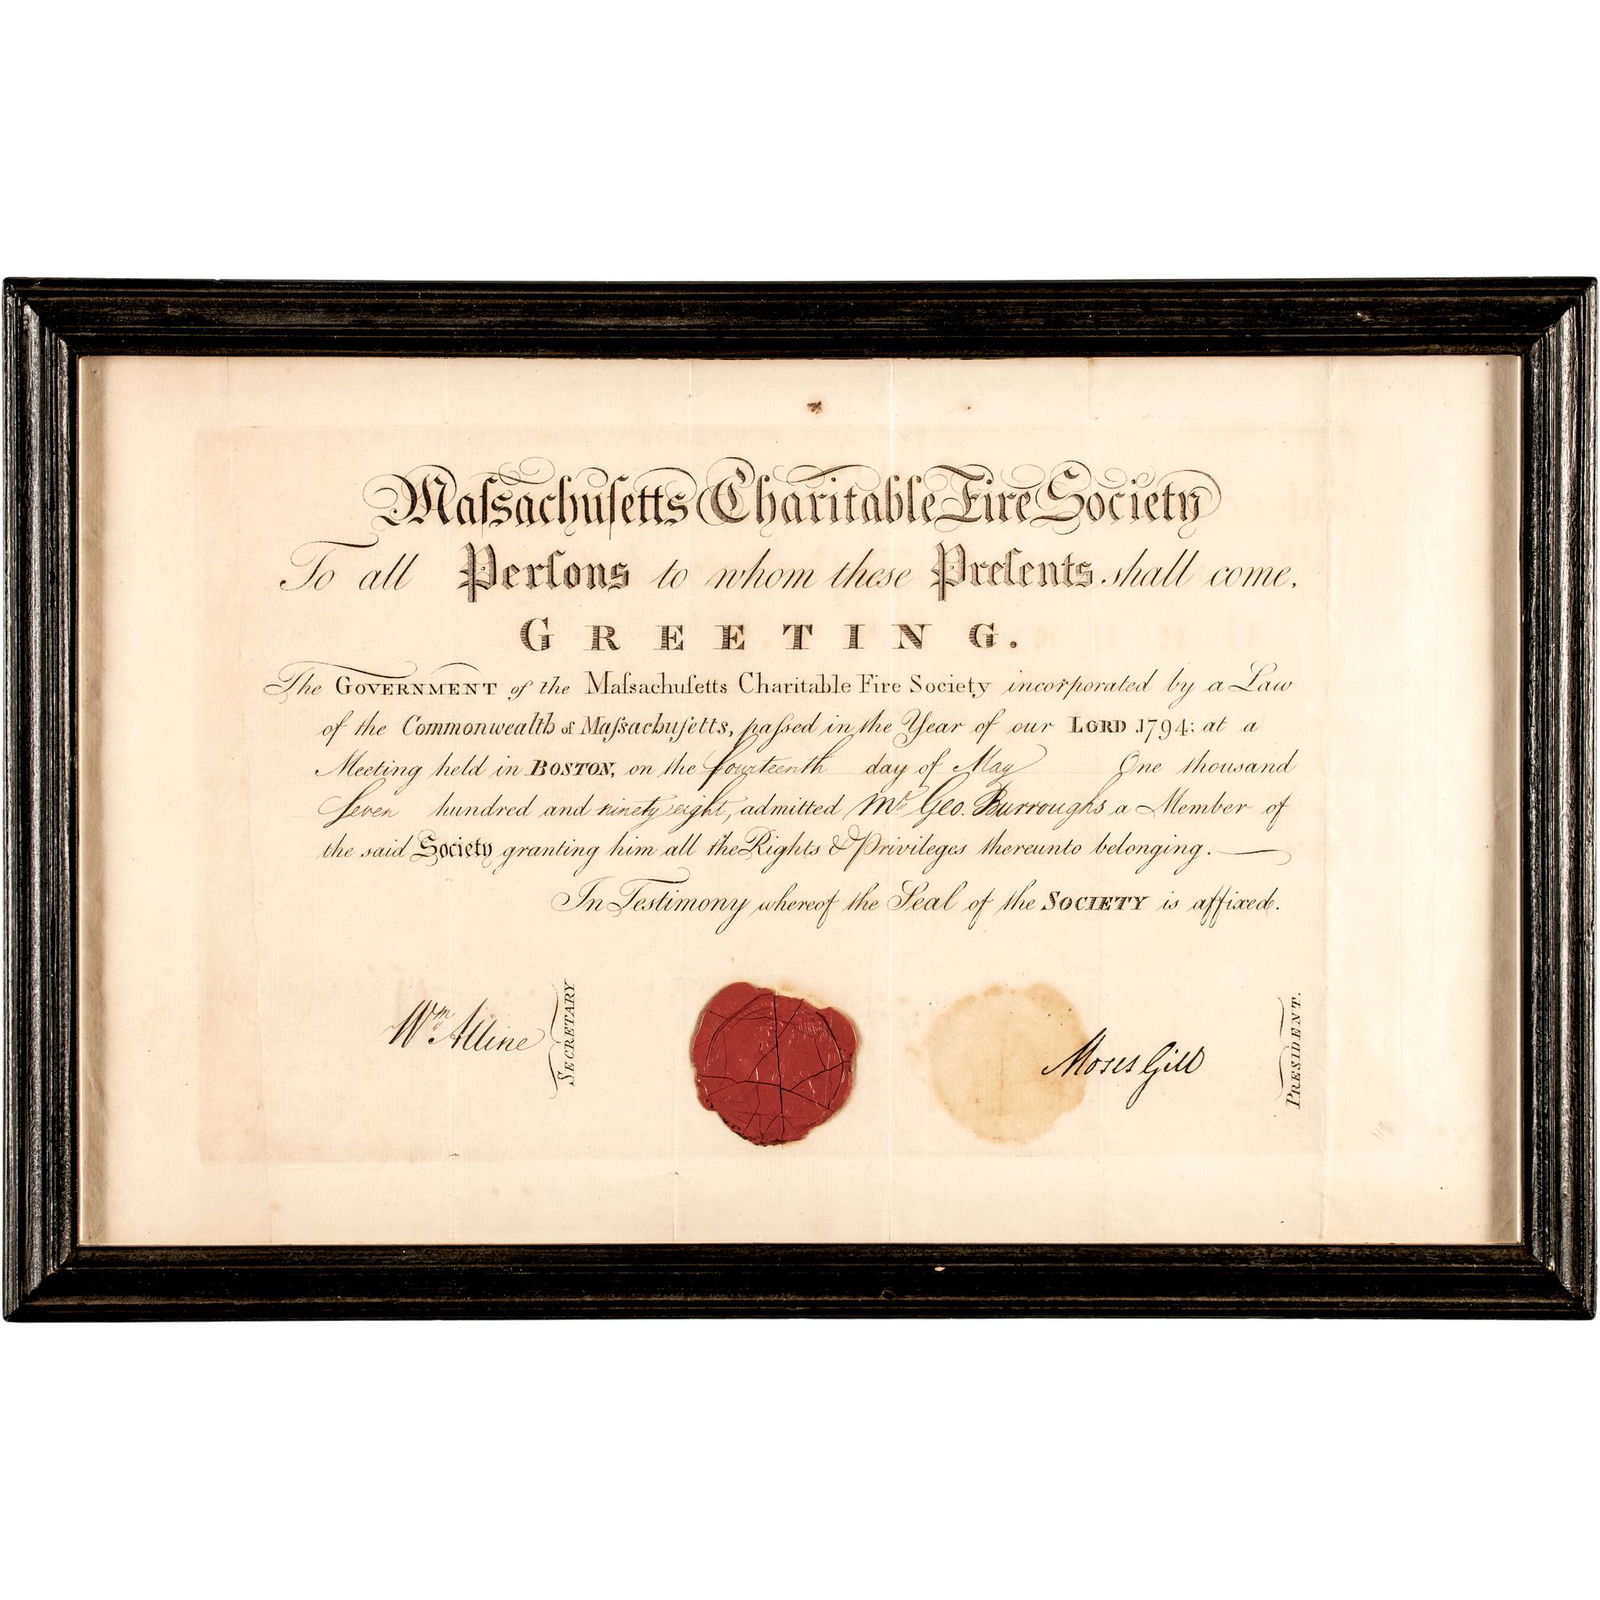 Maſsachuſetts Charitable Fire Society
To all Perſons to whom these Preſents shall come,
GREETING.
The GOVERNMENT of the Maſsachuſetts Charitable Fire Society incorporated by a Law
of the Commonwealth of Maſsachuſetts, paſsed in the Year of our LORD 1794; at a
Meeting held in BOSTON, on the fourteenth day of May One thousand
Seven hundred and ninety eight, admitted Mr Geo. Burroughs a Member of
the said Society granting him all the Rights & Privileges thereunto belonging.
In Testimony whereof the Seal of the SOCIETY is affixed.
Wm Alline SECRETARY
Moses Gill PRESIDENT.